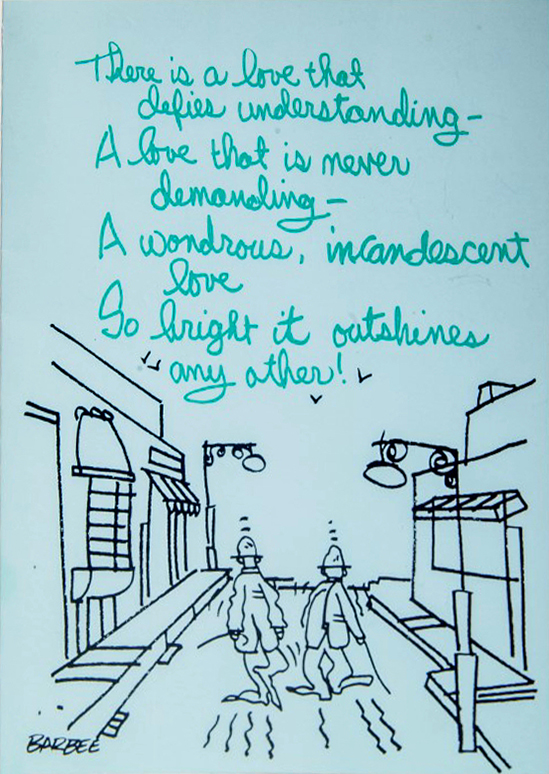 There is a love that
defies understanding—
A love that is never
demanding—
A wondrous, incandescent
love
So bright it outshines
any other!
BARBEE